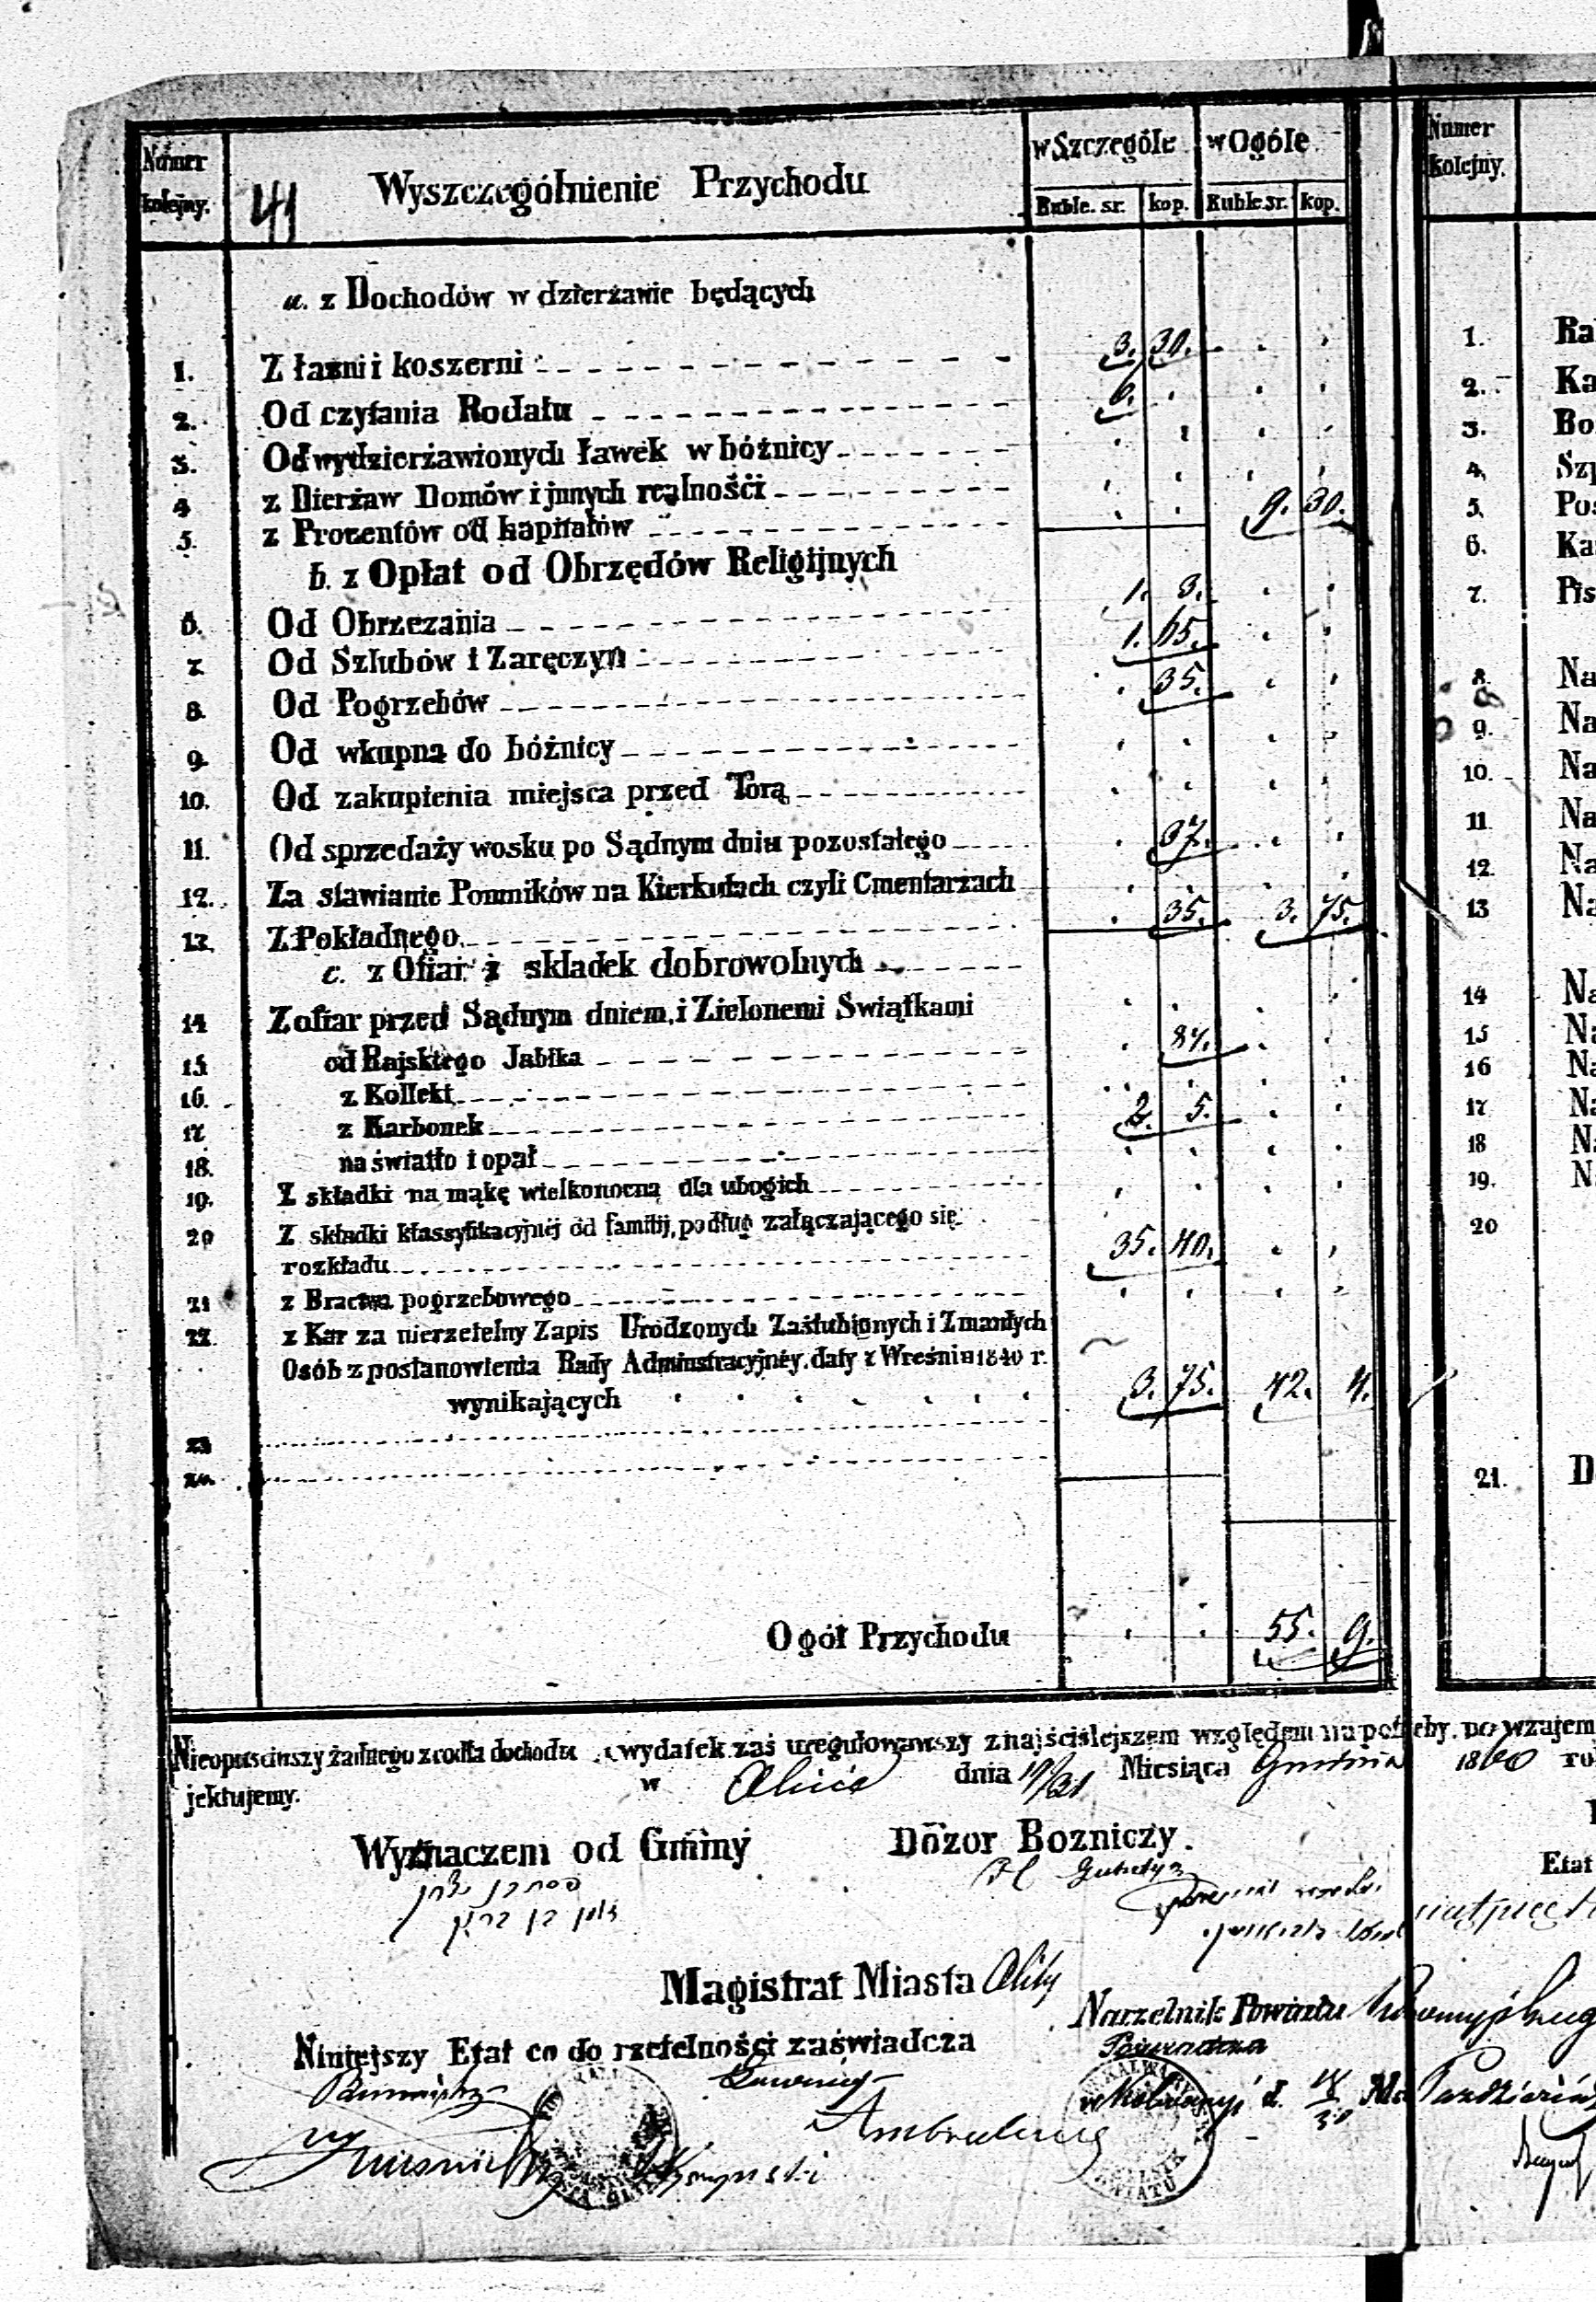 Numer kolejny. 41 Wyszczegółnienie Przychodu w Szczególe w Ogóle
Ruble. sr. kop. Ruble sr. kop.
a. z Dochodów w dzierżawie będących
1. Z łaźni i koszerni 3. 30.
2. Od czytania Rodału 6.
3. Od wydzierżawionych ławek w bóżnicy
4 z Dierżaw Domów i jnnych realnośći
5. z Procentów od kapitałów 9. 30.
b. z Opłat od Obrzędów Religijnych
6. Od Obrzezania 1. 3.
7. Od Szlubów i Zaręczyn 1.
8. Od Pogrzebów 35.
9. Od wkupna do bóżnicy
10. Od zakupienia miejsca przed Torą
11. Od sprzedaży wosku po Sądnym dniu pozostałego 37.
12. Za stawianie Pomników na Kierkutach czyli Cmentarzach
13. Z Pokładnego 35. 3. 75.
c. z Ofiar i składek dobrowolnych
14 Z ofiar przed Sądnym dniem, i Zielonemi Swiątkami
15 od Rajskiego Jabłka 84.
16. z Kollekt
17 z Karbonek 2. 5.
18. na światło i opał
19. Z składki na mąkę wielkonocną dla ubogich
20 Z składki klassyfikacyjnéj od familij, podług załączającego się
rozkładu 35. 40.
21 z Bractwa pogrzebowego
22. z Kar za nierzetelny Zapis Urodzonych Zaślubionych i Zmarłych
Osób z postanowienia Rady Adminstracyjnéy. daty z Wreśnia 1840 r.
wynikających 3. 75. 42. 4.
23
24.
Ogół Przychodu 55. 9.
Nieopuściwszy żadnego zrodła dochodu, wydatek zaś uregulowawszy z najściślejszem względem na potrzeby, po wzajem
jektujemy. w Olicie dnia 19/31 Miesiąca Grudnia 1860 ro
Wyznaczem od Gminy Dozor Bozniczy.
Magistrat Miasta Olity
Naczelnik Powiatu
Niniejszy Etat co do rzetelności zaświadcza
Burmistrz Ławnicy
Numer kolejny.
1. Ra
2. Ka
3. Bo
4. Szp
5. Pos
6. Ka
7. Pis
8. Na
9. Na
10. Na
11 Na
12. Na
13 Na
14 Na
15 Na
16 Na
17 Na
18 Na
19. N
20
21. D
Etat